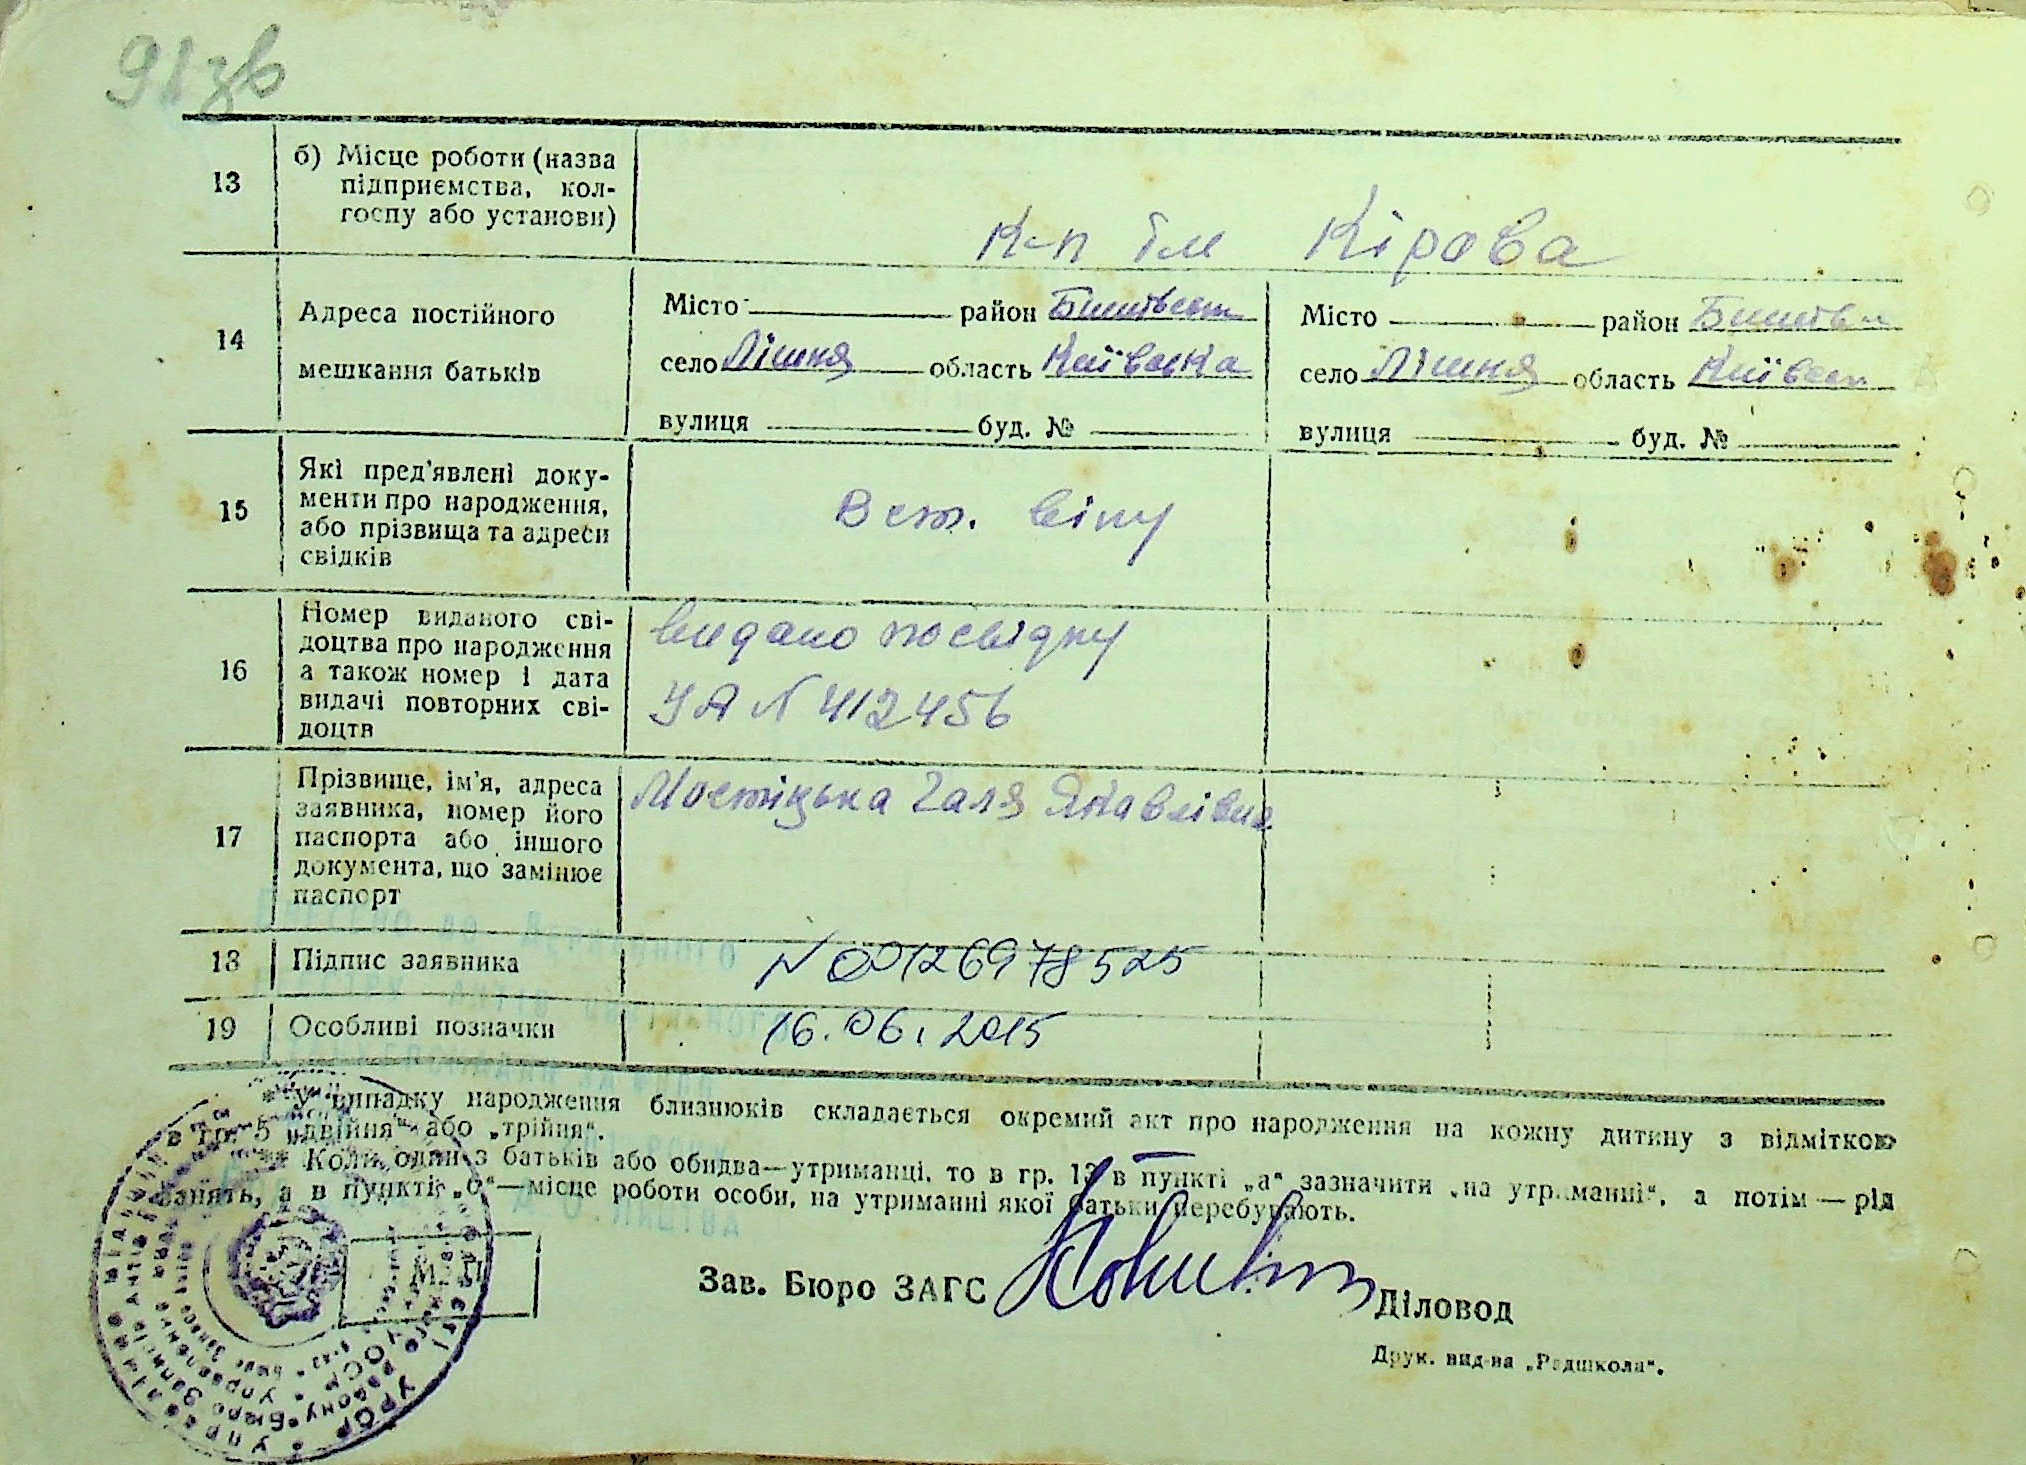 91зв
13 б) Місце роботи (назва
підприємства, кол-
госпу або установи)
К-п ім Кірова
14 Адреса постійного
мешкання батьків
Місто район
село Лішня область Київська
вулиця буд. №
Місто район
село Лішня область
вулиця буд. №
15 Які пред'явлені доку-
менти про народження,
або прізвища та адреси
свідків
Вст. віку
16 Номер виданого сві-
доцтва про народження
а також номер і дата
видачі повторних сві-
доцтв
видано посвідку
УА N 412456
17 Прізвище, ім'я, адреса
заявника, номер його
паспорта або іншого
документа, що замінює
паспорт
Мостіцька Галя
18 Підпис заявника N 00126978525
19 Особливі позначки 16.06.2015
* У випадку народження близнюків складається окремий акт про народження на кожну дитину з відміткою
в гр. 5 „двійня“ або „трійня“.
** Коли один з батьків або обидва—утриманці, то в гр. 13 в пункті „а“ зазначити „на утриманні“, а потім — рід
занять, а в пункті „б“—місце роботи особи, на утриманні якої батьки перебувають.
М. П.
Зав. Бюро ЗАГС Діловод
Друк. вид-ва „Радшкола“.